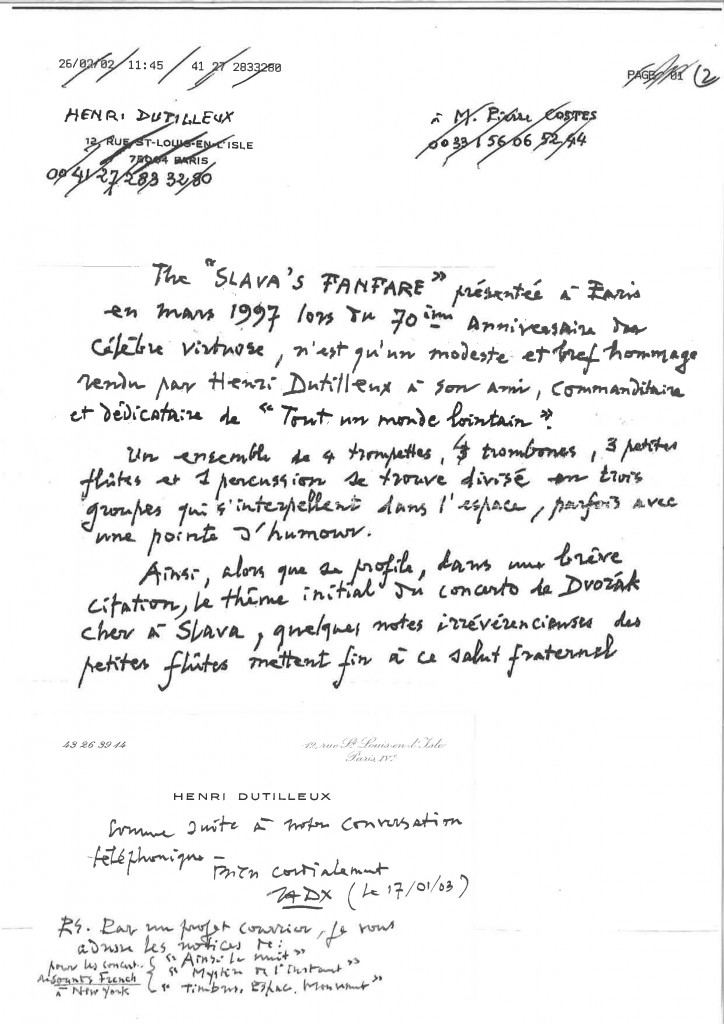 26/02/02 11:45 41 27 2833280 PAGE 01 (2
HENRI DUTILLEUX
à M. Pierre COSTES
12, RUE ST-LOUIS-EN-L'ISLE
00 33 1 56 06 52 44
75004 PARIS
00 41 27 283 32 80
The "SLAVA'S FANFARE" présentée à Paris
en mars 1997 lors du 70ième Anniversaire du
célèbre virtuose, n'est qu'un modeste et bref hommage
rendu par Henri Dutilleux à son ami, commanditaire
et dédicataire de "Tout un monde lointain".
Un ensemble de 4 trompettes, trombones, 3 petites
flûtes et 1 percussion se trouve divisé en trois
groupes qui s'interpellent dans l'espace, parfois avec
une pointe d'humour.
Ainsi, alors que se profile, dans une brève
citation, le thème initial du concerto de Dvořák
cher à Slava, quelques notes irrévérencieuses des
petites flûtes mettent fin à ce salut fraternel
43 26 39 14
19, rue St Louis-en-l'Isle
Paris IVe
HENRI DUTILLEUX
Comme suite à notre conversation
téléphonique -
Bien cordialement
(Le 17/01/03)
PS. Par un projet courrier, je vous
adresse les notices de :
pour les concerts { "Ainsi la nuit"
Sounds French "Mystère de l'instant"
à New York "Timbres, Espace, Mouvement"